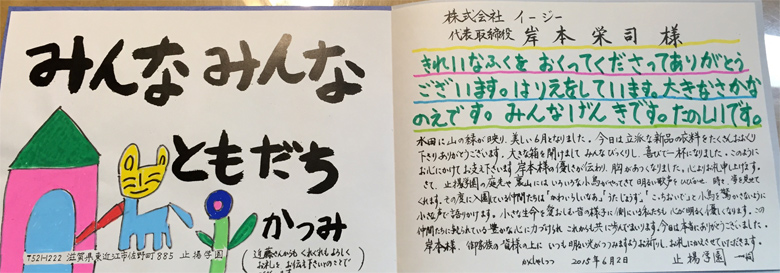 みんなみんな
ともだち
かつみ
〒521-1222 滋賀県東近江市佐野町885 止揚学園
株式会社 イージー
代表取締役 岸本栄司様
きれいなふくを おくってくださってありがとう
ございます。はりえをしています。大きなさかな
のえです。みんなげんきです。たのしいです。
水田に山の緑が映り、美しい6月となりました。今日は立派な新品の衣料をたくさんおおくり
下さりありがとうございます。大きな箱を開けまして みんなびっくりし、喜びで一杯になりました。このように
おしにかけてお支え下さいます岸本様の優しさが伝わり、胸があつくなりました。心よりお礼申し上げます。
さて、止揚学園の庭先や裏山にはいろいろな小鳥がやってきて明るい歌声をひびかせ、時々、姿を見せて
くれます。その度に入園している仲間たちは「かわいらしいなあ。」「うたじょうず。」
小さな声で語りかけます。小さな生命を愛おしむ
仲間たちに
岸本様、御家族の皆様の上に いつも明るい光が
2015年6月2日
止揚学園 一同